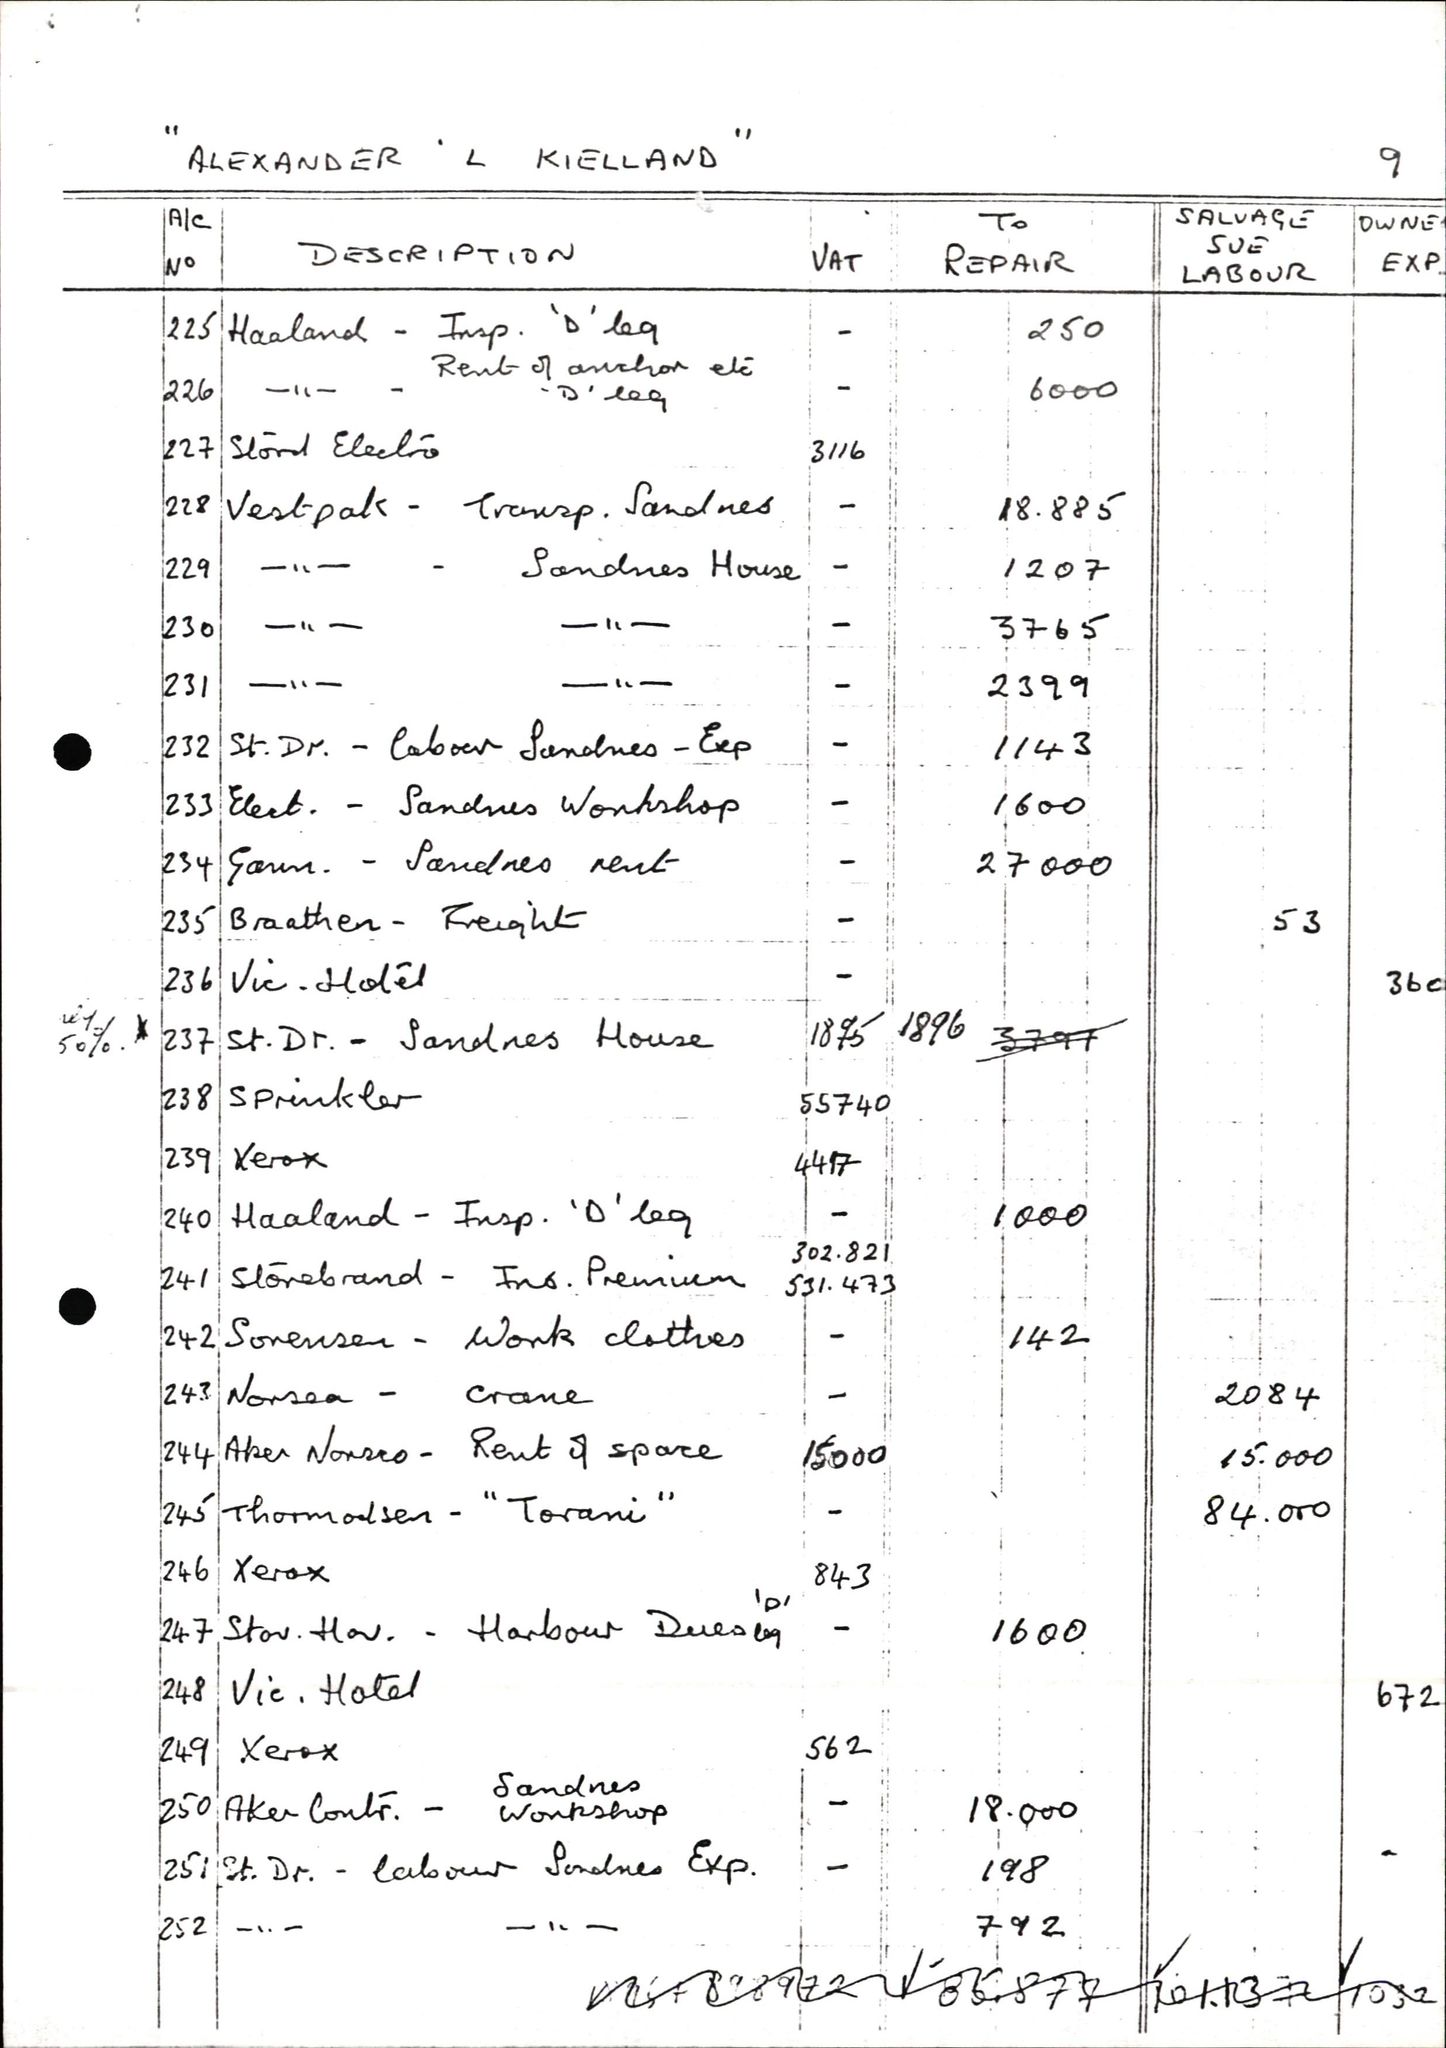 "ALEXANDER L KIELLAND" 9
A/C No DESCRIPTION VAT To REPAIR SALVAGE SUE LABOUR OWNE EXP.
225 Haaland - Insp. 'D' leg - 250
226 —"— - Rent of anchor etc 'D' leg - 6000
227 Stord Electro 3116
228 Vestpak - Transp. Sandnes - 18.885
229 —"— - Sandnes House - 1207
230 —"— —"— - 3765
231 —"— —"— - 2399
232 St. Dr. - labour Sandnes - Exp - 1143
233 Elect. - Sandnes Workshop - 1600
234 Gann. - Sandnes rent - 27000
235 Braathen - Freight - 53
236 Vic. Hotel - 360
50%. * 237 St. Dr. - Sandnes House 1895 1896 3797
238 Sprinkler 55740
239 Xerox 4417
240 Haaland - Insp. 'D' leg - 1000
302.821
241 Storebrand - Ins. Premium 531.473
242 Sorensen - Work clothes - 142
243 Norsea - Crane - 2084
244 Aker Norsco - Rent of space 15000 15.000
245 Thormodsen - "Torani" - 84.000
246 Xerox 843
247 Stav. Hav. - Harbour Dues 'D' leg - 1600
248 Vic. Hotel 672
249 Xerox 562
250 Aker Contr. - Sandnes Workshop - 18.000
251 St. Dr. - labour Sandnes Exp. - 198 -
252 —"— —"— 792
86.877 101.137 1032